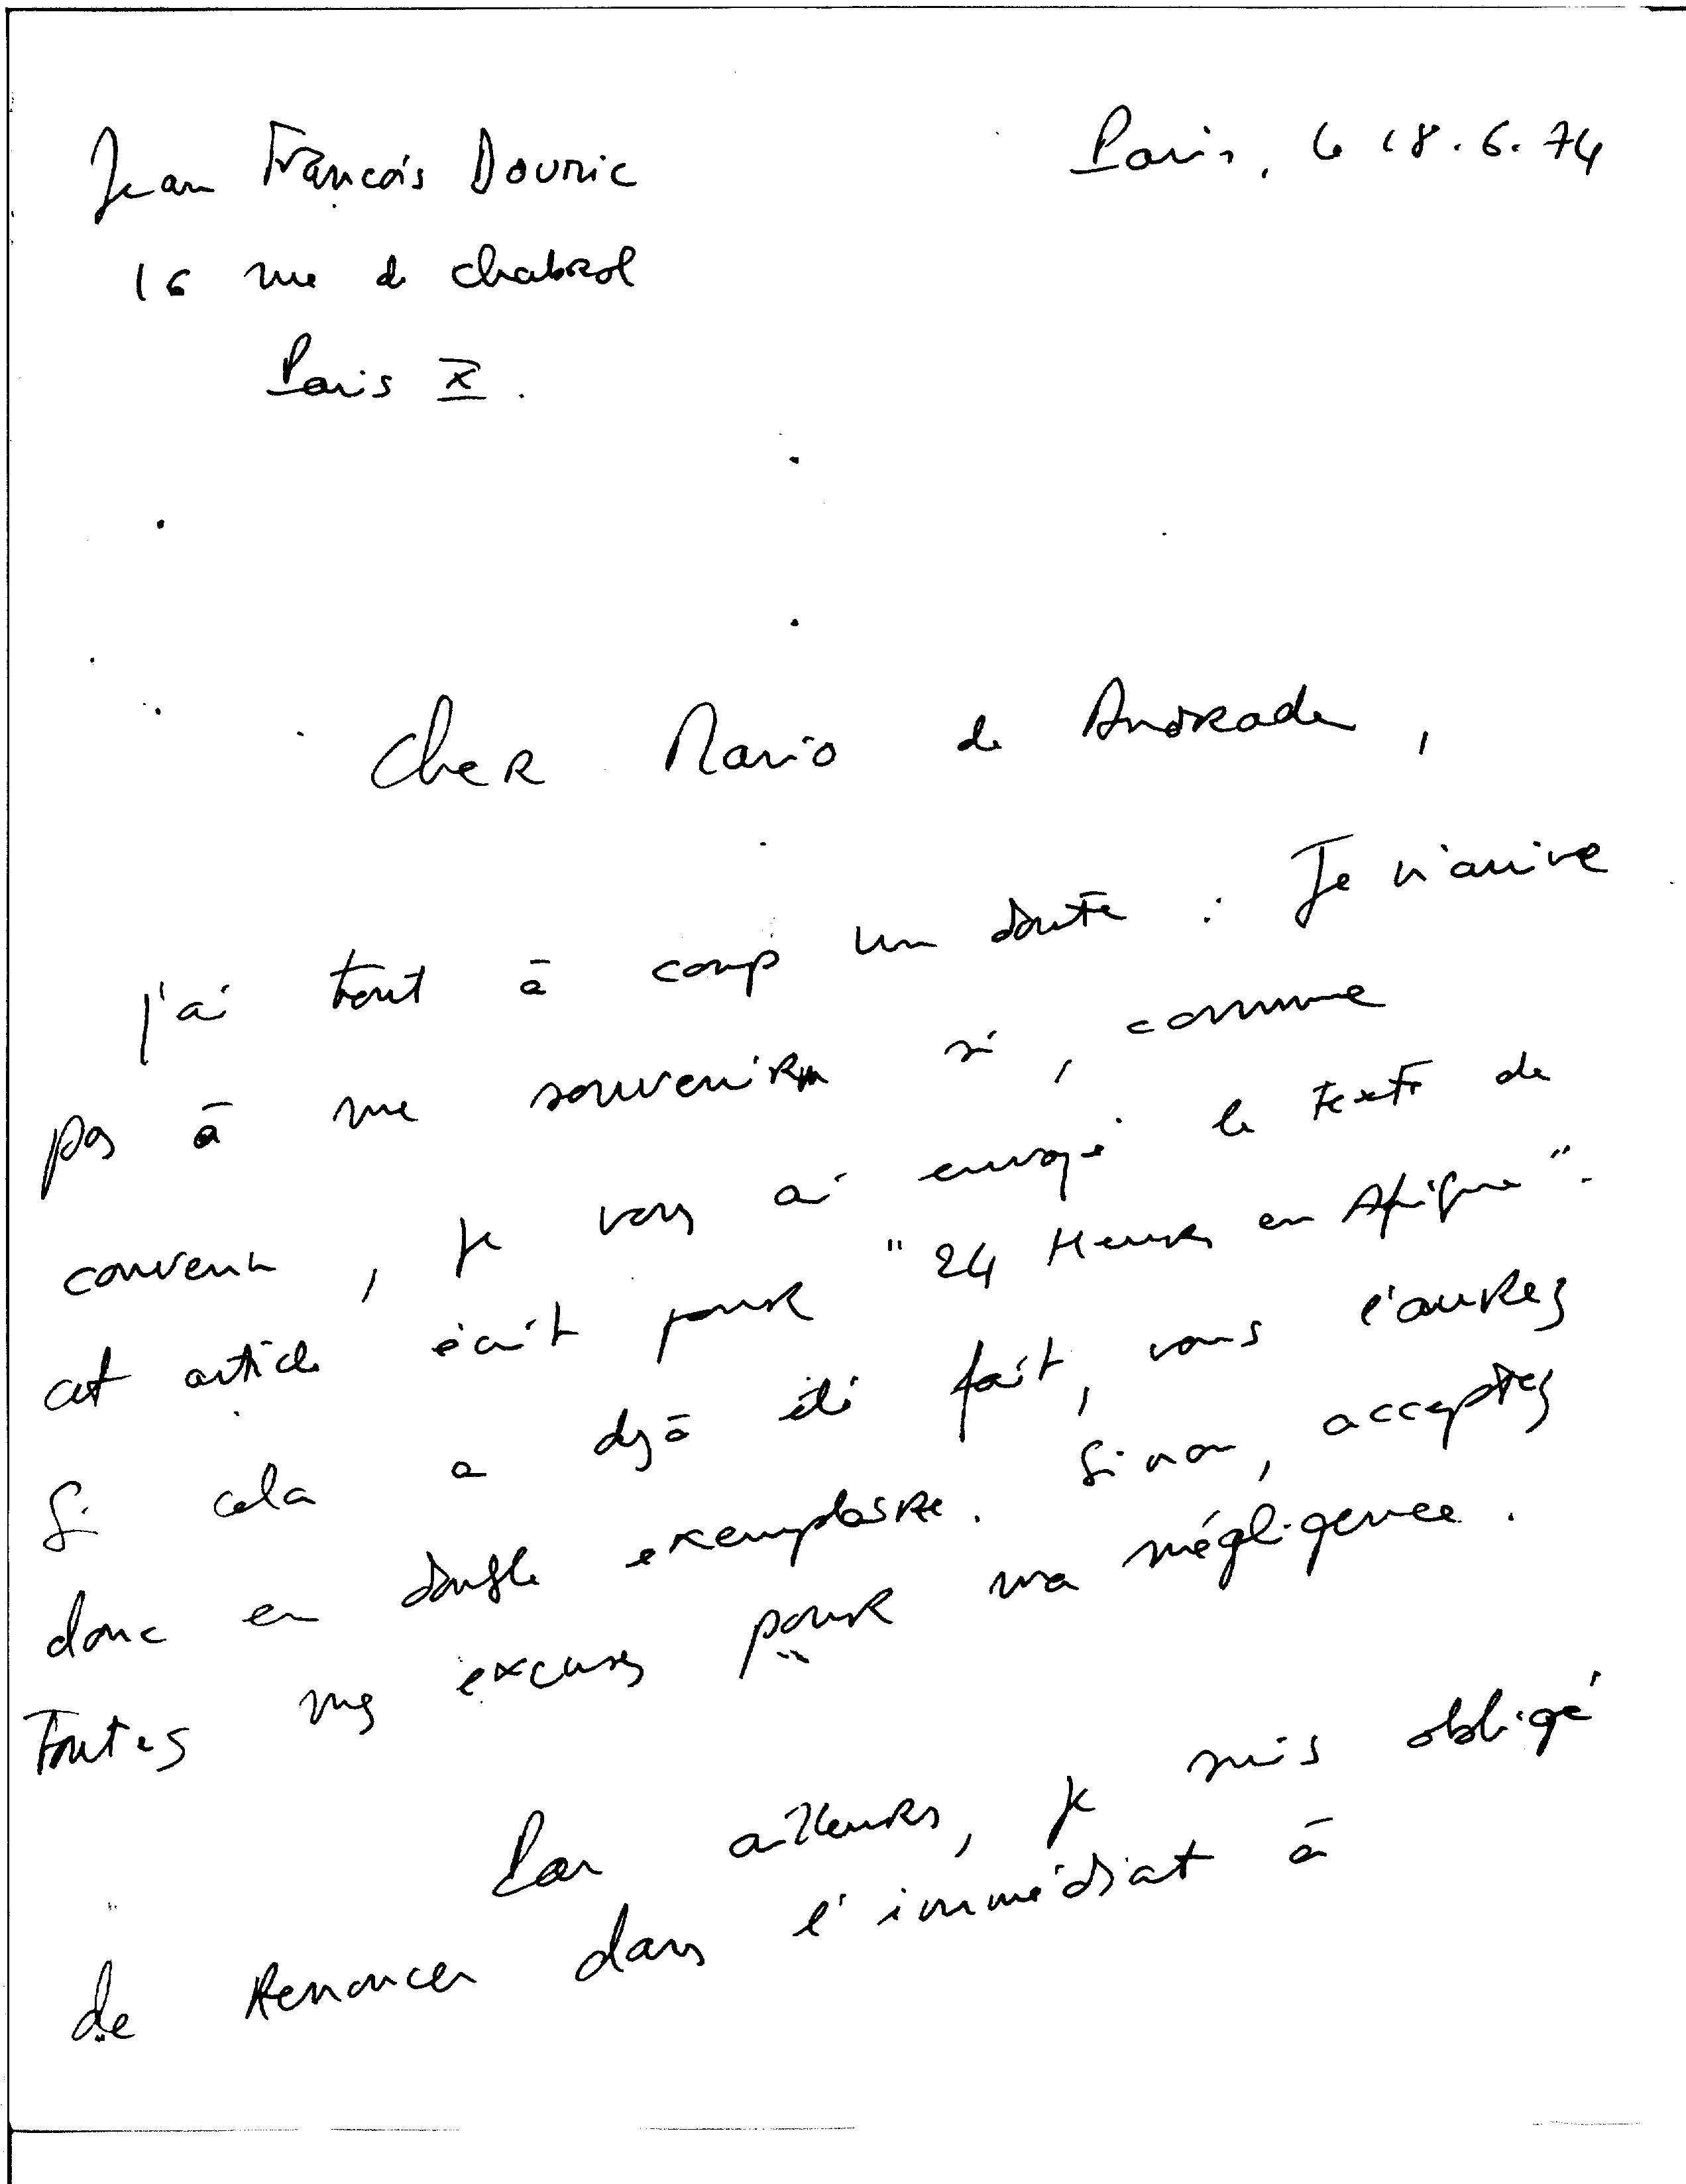 Jean François Dounic
Paris, le 18.6.74
16 rue de chabrol
Paris X.
Cher Mario de Andrade,
J'ai tout à coup un doute : Je n'arrive
pas à me souvenir si, comme
convenu, je vous ai envoyé le texte de
cet article écrit pour "24 Heures en Afrique".
Si cela a déjà été fait, vous l'aurez
donc en double exemplaire. Sinon, acceptez
toutes mes excuses pour ma négligence.
Par ailleurs, je suis obligé
de renoncer dans l'immédiat à